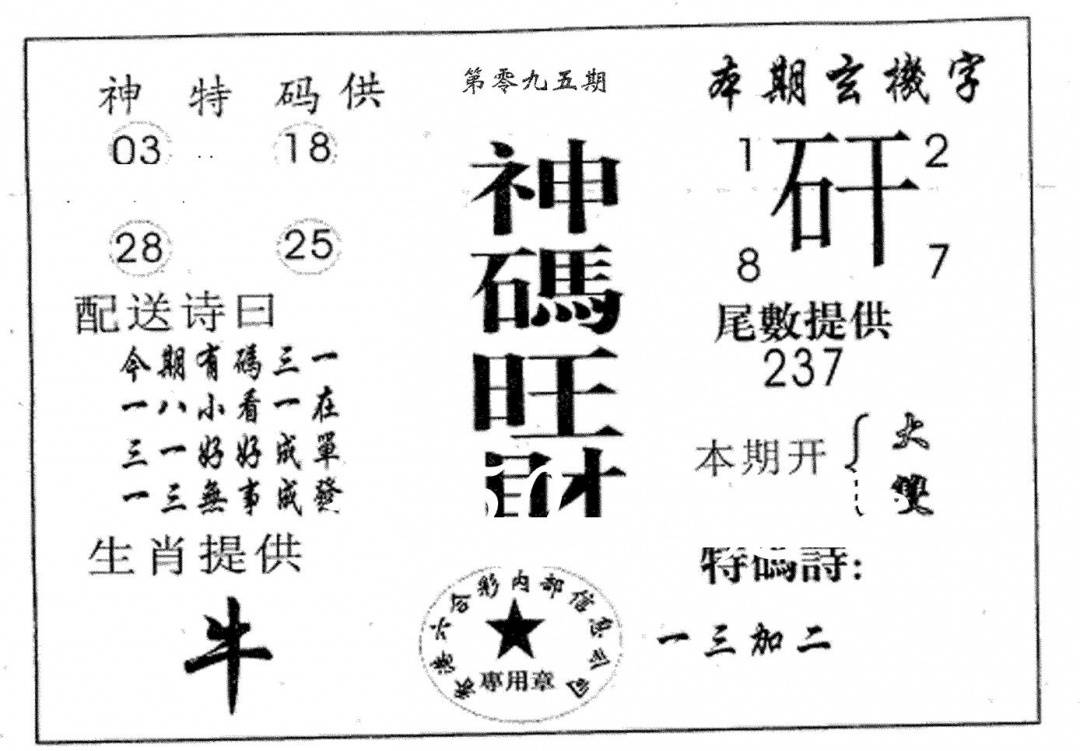 神特码供
03 18
28 25
配送诗曰
今期有碼三一
一八小看一在
三一好好成單
一三無事成發
生肖提供
牛
第零九五期
神
碼
旺
財
香港六合彩内部信息公司
專用章
本期玄機字
1 矸 2
8 7
尾數提供
237
本期开
大
雙
特碼詩:
一三加二